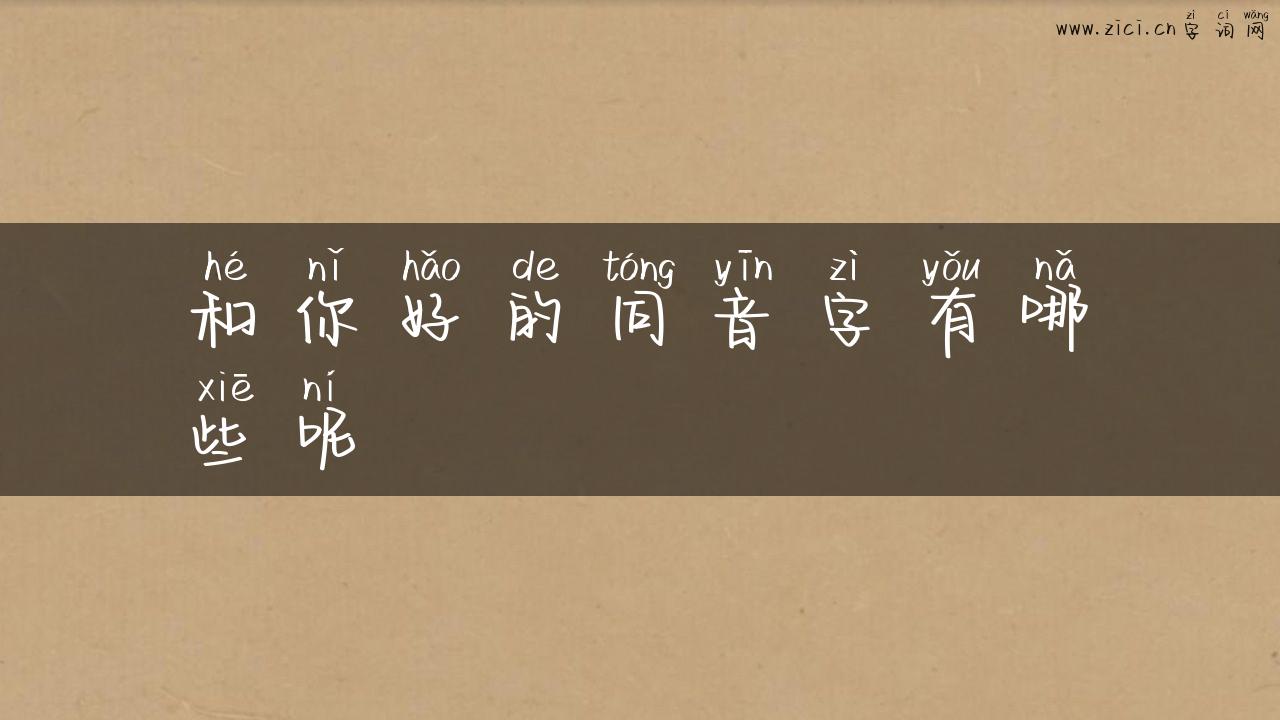 zì cí wǎng
www.zici.cn 字 词 网
hé nǐ hǎo de tóng yīn zì yǒu nǎ
和 你 好 的 同 音 字 有 哪
xiē ní
些 呢